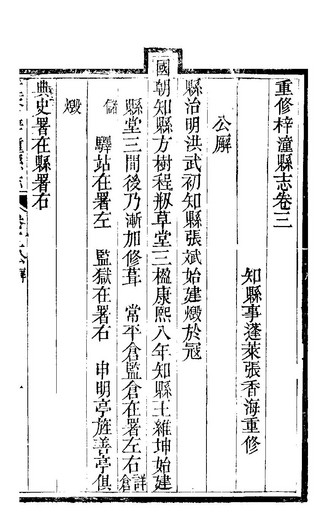 重修梓潼縣志卷三
知縣事蓬萊張香海重修
公廨
縣治明洪武初知縣張斌始建燬於冠
國朝知縣方樹程剏草堂三楹康熙八年知縣王維坤始建
縣堂三間後乃漸加修葺 常平倉監倉在署左右詳倉
儲 驛站在署左 監獄在署右 申明亭旌善亭俱
燬
典史署在縣署右